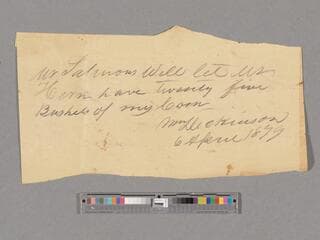 Mr Salmons Will let Mr
Horn have twenty five
Bushels of my Corn
Wm Dickinson
6 April 1879